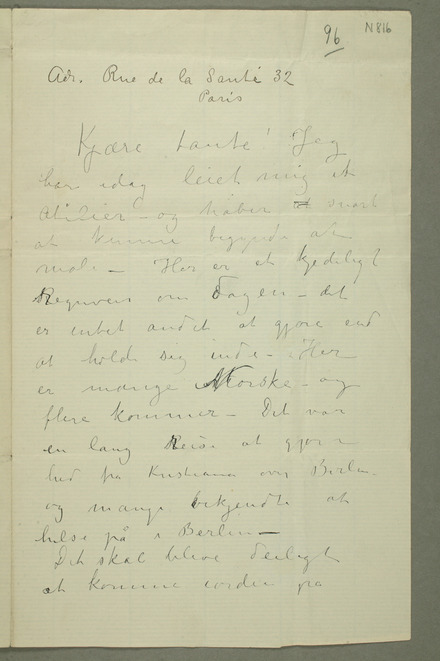 96
N 816
Adr. Rue de la Santé 32
Paris
Kjære Tante! Jeg
har idag leiet mig et
Atelier – og håber snart
at kunne begynde at
male – Her er et kjedeligt
Regnveir om Dagen – det
er intet andet at gjøre end
at holde sig inde – Her
er mange Norske – og
flere kommer – Det var
en lang Reise at gjøre
hid fra Kristiania over Berlin
og mange bekjendte at
hilse på i Berlin –
Det skal blive deiligt
at komme på